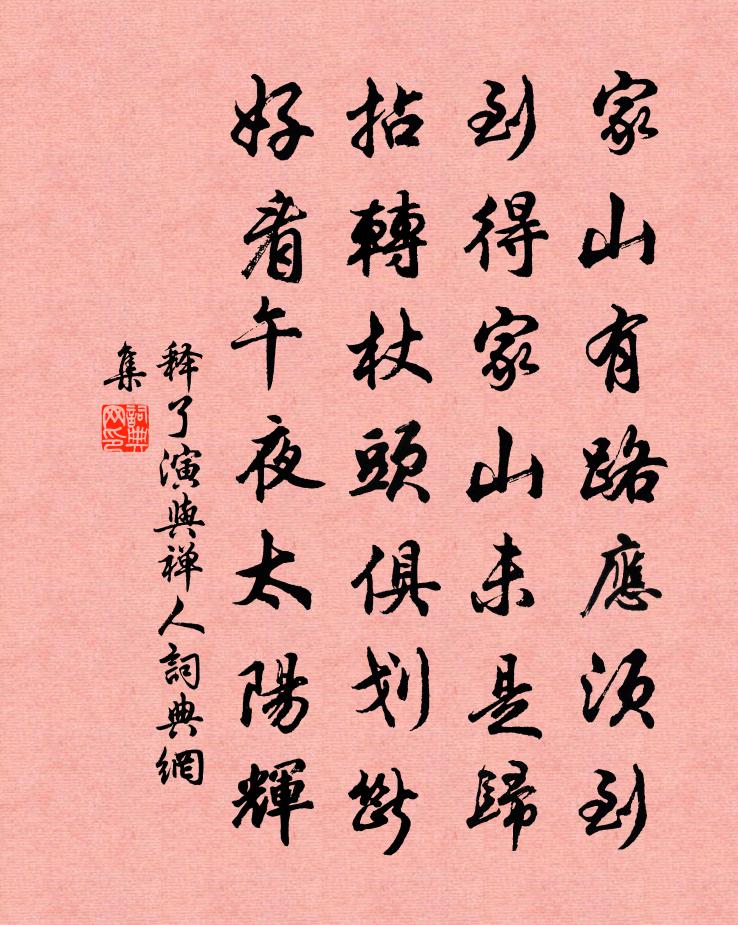 家山有路應須到
到得家山未是歸
拈轉杖頭俱划斷
好看午夜太陽輝
释了演與禅人詞典網
集
詞典
网印